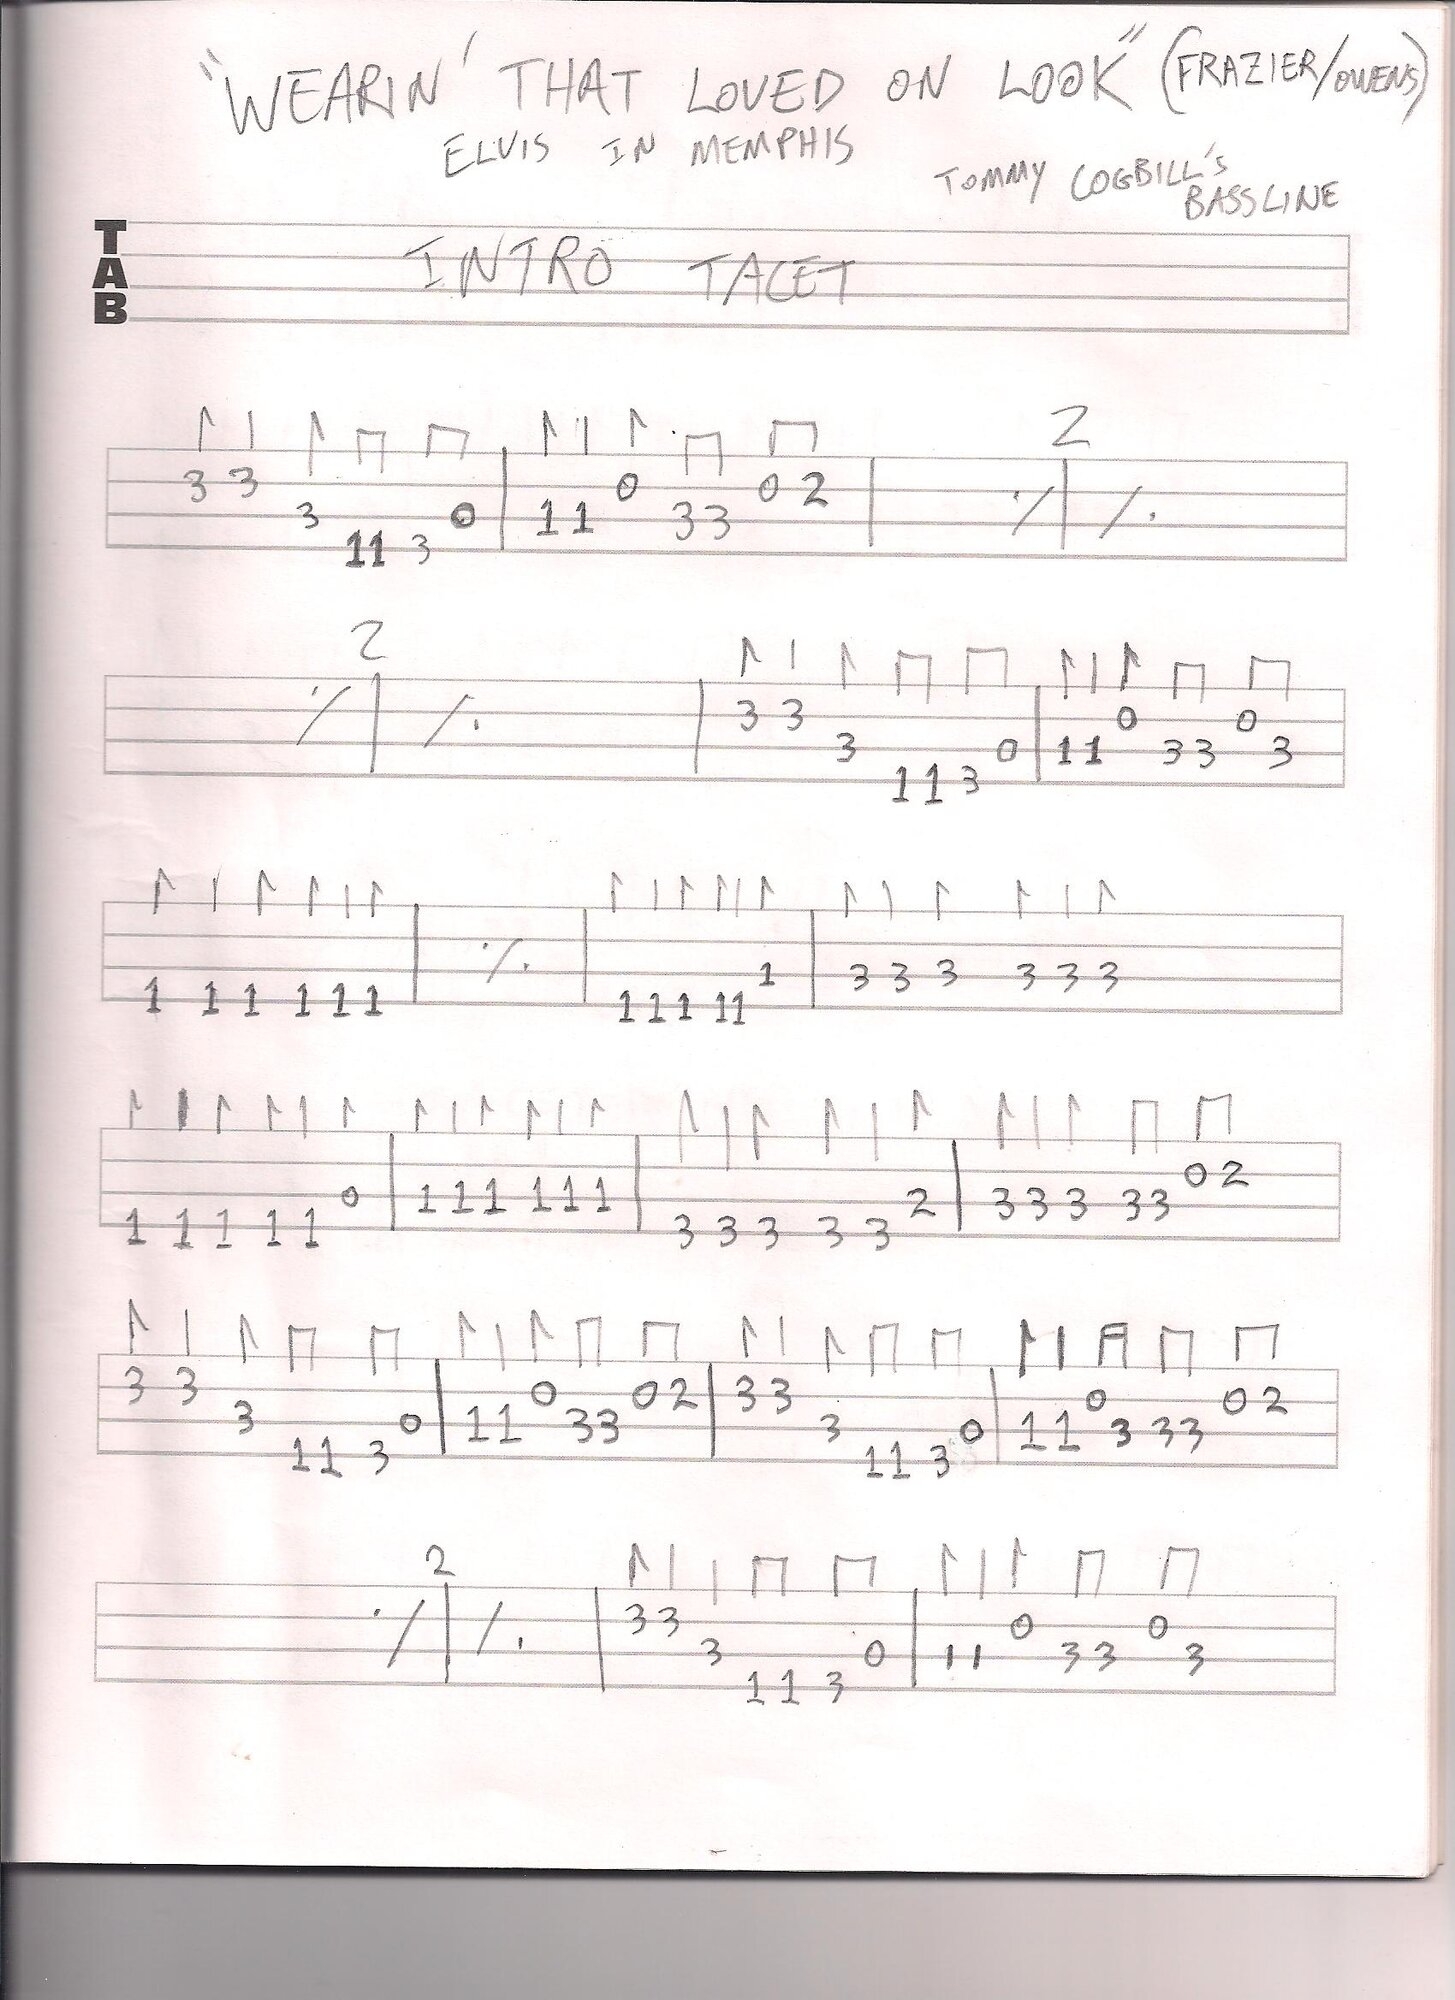 "WEARIN' THAT LOVED ON LOOK" (FRAZIER/OWENS)
ELVIS IN MEMPHIS
TOMMY COGBILL'S
BASSLINE
TAB
INTRO TACET
3 3 3 11 3 0 11 0 33 0 2 2
2 3 3 3 11 3 0 11 0 33 0 3
1 1 1 1 1 1 1 1 1 11 1 3 3 3 3 3 3
1 1 1 1 1 0 1 1 1 1 1 1 3 3 3 3 3 2 3 3 3 33 0 2
3 3 3 11 3 0 11 0 33 0 2 3 3 3 11 3 0 11 0 3 33 0 2
2 33 3 11 3 0 11 0 33 0 3